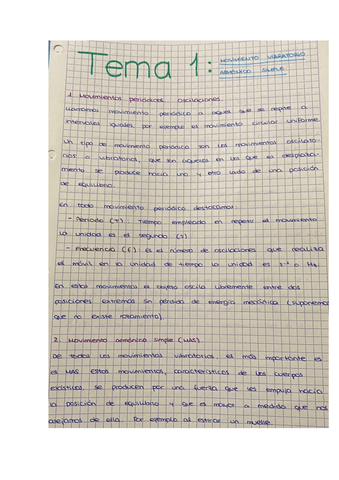 Tema 1: MOVIMIENTO VIBRATORIO
ARMÓNICO SIMPLE
1. Movimientos periódicos. Oscilaciones.
Llamamos movimiento periódico a aquel que se repite a
intervalos iguales, por ejemplo el movimiento circular uniforme.
Un tipo de movimiento periódico son los movimientos oscilato-
rios o vibratorios, que son aquellos en los que el desplaza-
miento se produce hacia uno y otro lado de una posición
de equilibrio.
En todo movimiento periódico destacamos:
- Periodo (T). Tiempo empleado en repetir el movimiento
La unidad es el segundo (s)
- Frecuencia (f) es el número de oscilaciones que realiza
el móvil en la unidad de tiempo la unidad es s⁻¹ o Hz
En estos movimientos el objeto oscila libremente entre dos
posiciones extremas sin pérdida de energía mecánica (suponemos
que no existe rozamiento).
2. Movimiento armónico simple (MAS)
De todos los movimientos vibratorios, el más importante es
el MAS. Estos movimientos, característicos de los cuerpos
elásticos, se producen por una fuerza que les empuja hacia
la posición de equilibrio y que es mayor a medida que nos
alejamos de ella. Por ejemplo al estirar un muelle.